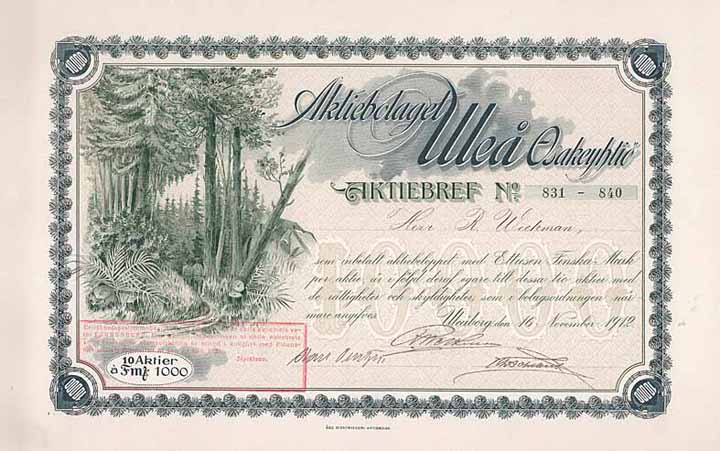 Aktiebolaget Uleå Osakeyhtiö
AKTIEBREF No. 831 - 840
Herr R. Weckman,
som inbetalt aktiebeloppet med Ettusen Finska Mark
per aktie, är i följd deraf egare till dessa tio aktier med
de rättigheter och skyldigheter, som i bolagsordningen när-
mare angifvas. Wiborg den 16 November 1912
Styrelsen.
10 Aktier
à Fmk 1000
10000